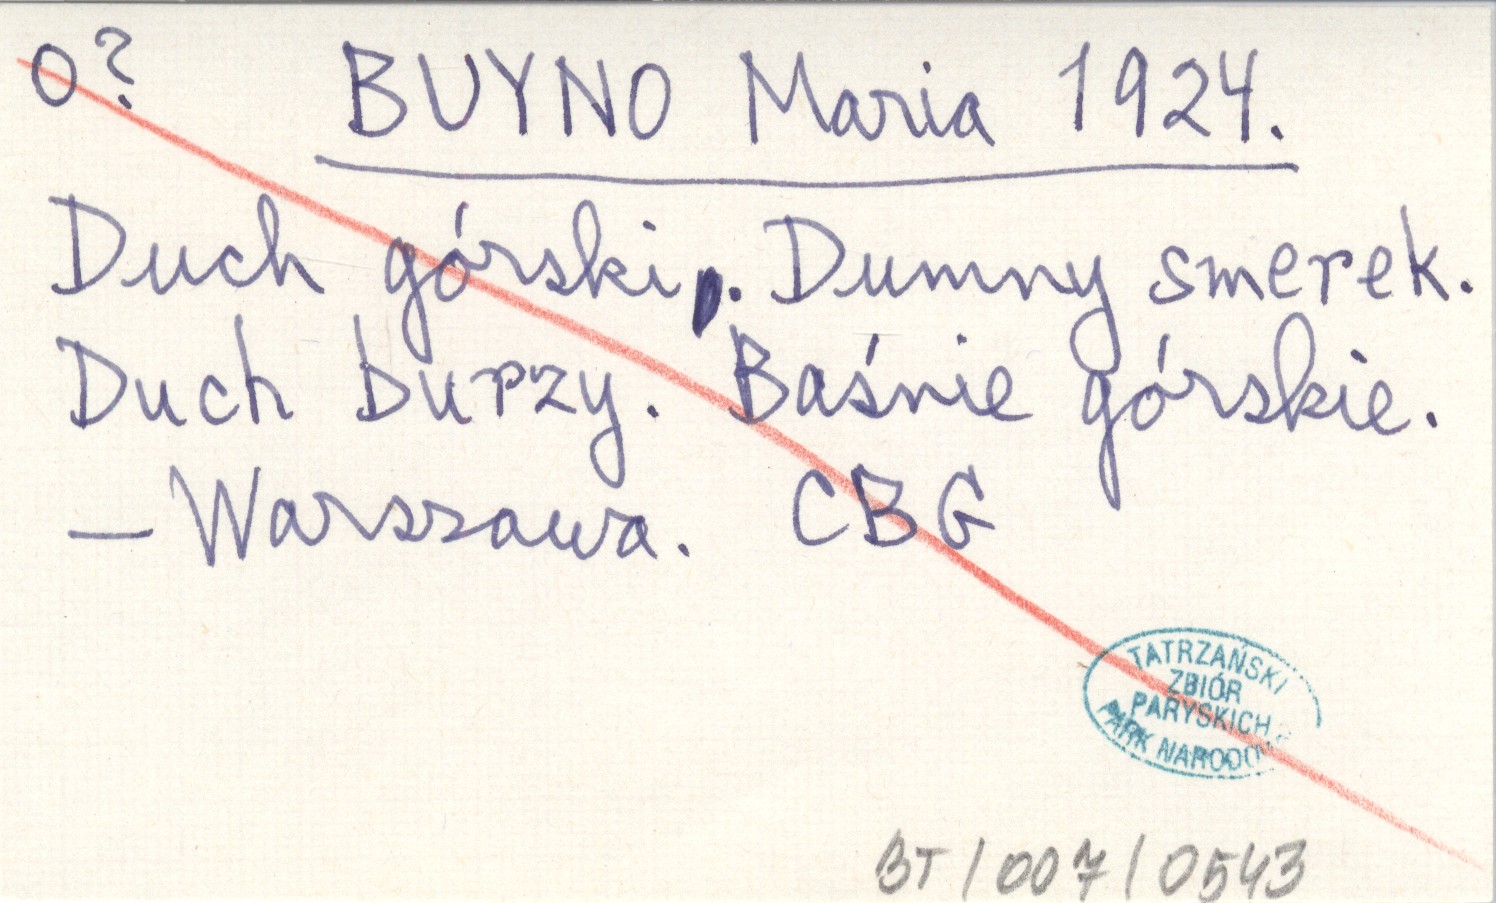 O? BUYNO Maria 1924.
Duch górski. Dumny smerek.
Duch burzy. Baśnie górskie.
— Warszawa. CBG
TATRZAŃSKI
ZBIÓR
PARYSKICH
PARK NARODOW
BT/007/0543